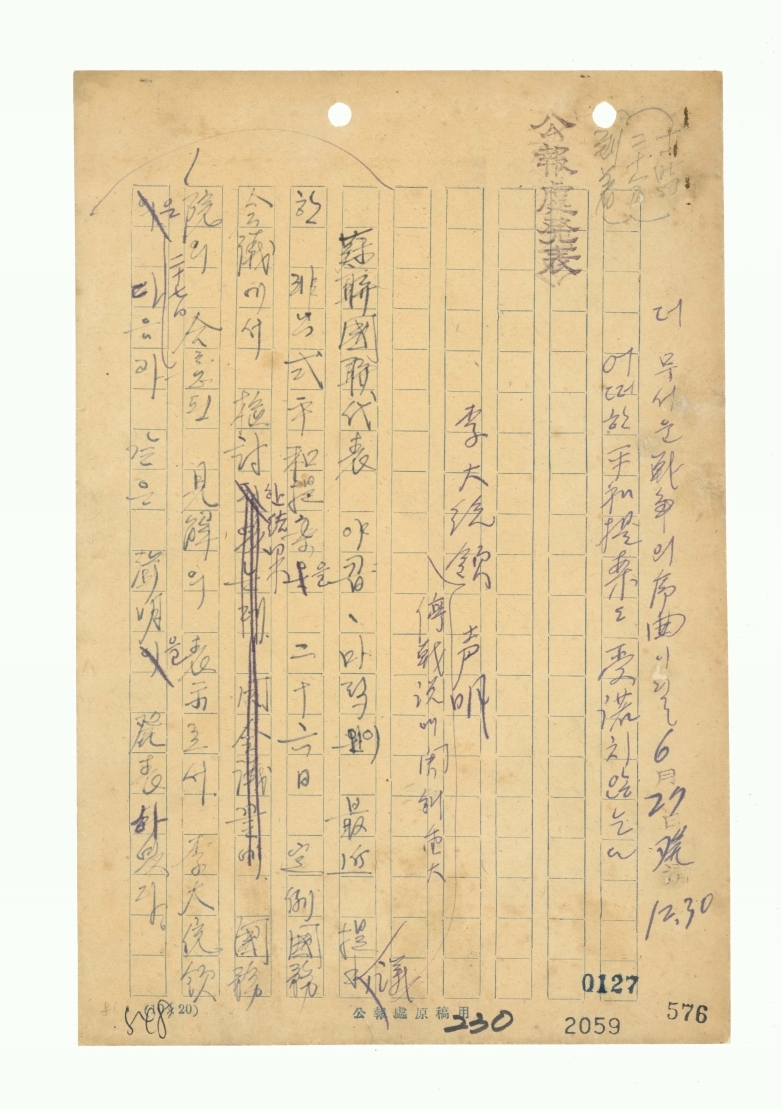 公報處発表
더 무서운 戰争의 序曲이되는 6月27日
12.30
어떠한 平和提案도 受諾치 않는다
李大統領 声明
停戰說에 関
蘇聯國聯代表 야콥、마릭이 最近 提議
한 非公式平和提案을 二十六日 定例國務
会議에서 檢討한結果 國務
院의 合意된 見解의 表示로서 李大統領
은 二十七日 다음과 같은 聲明을 發表하였다。
0127
576
2059
230
公報處原稿用
(10×20)
548